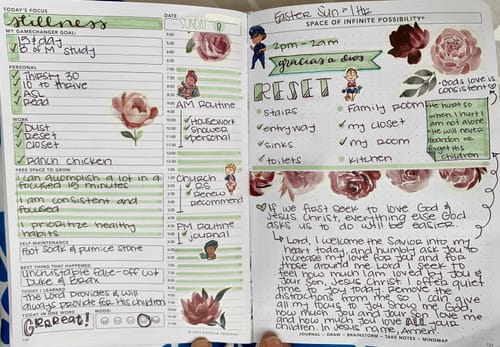 TODAY'S FOCUS
stillness
MY GAMECHANGER GOAL:
15+/day
B of M Study
PERSONAL
Thirsty 30
10 to thrive
ASL
Read
WORK
Dust
Reset
Closet
Ranch chicken
FREE SPACE TO GROW
I can accomplish a lot in a
focused 15 minutes
I am consistent and
focused
I prioritize healthy
habits
SELF-MAINTENANCE
Foot soak & pumice stone
BEST THING THAT HAPPENED
face-off w/
Duke & Brax
TODAY I LEARNED
The Lord provides & will
always provide for His children
TODAY IN ONE WORD
Grrreat!
MOOD
DATE
SUNDAY
AM Routine
Housework
Shower
personal
Church
RS
Renew
recommend
PM Routine
journal
Easter Sun
SPACE OF INFINITE POSSIBILITY
2pm - 2am
gracias a dios
RESET
God's love is
consistent
stairs
entryway
sinks
toilets
family room
my closet
my room
kitchen
He hurt so
when I hurt I
am not alone.
He will never
abandon or
forget His
children
If we first seek to love God &
Jesus Christ, everything else God
asks us to do will be easier.
Lord, I welcome the Savior into my
heart today and humbly ask you to
increase my love for you and for
those around me. Lord I seek to
feel how much I am loved by you &
your Son, Jesus Christ. I offer quiet
time & joy today. Remove the
distractions from me so I can give
all my focus to you. Show me God,
how much You and Your Son love me
and how much you love ALL your
children. In Jesus' name, Amen.
JOURNAL – DRAW – BRAINSTORM – TAKE NOTES – MINDMAP